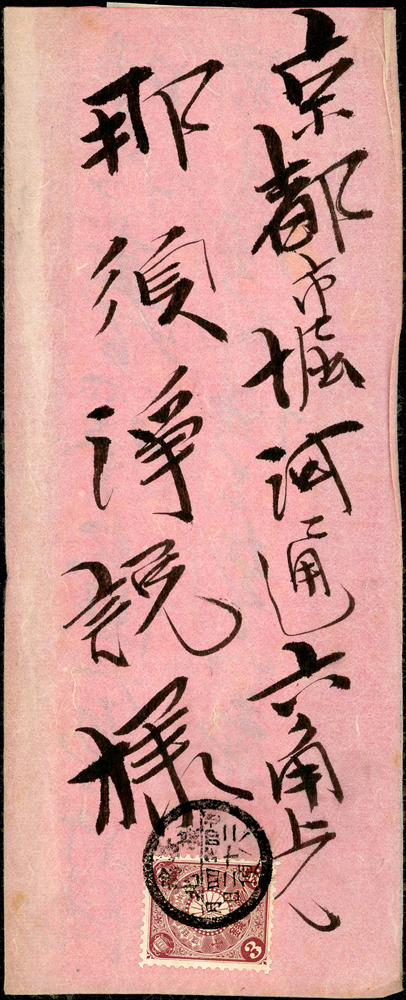 京都市堀河通六角上ル
那須浄説様
3